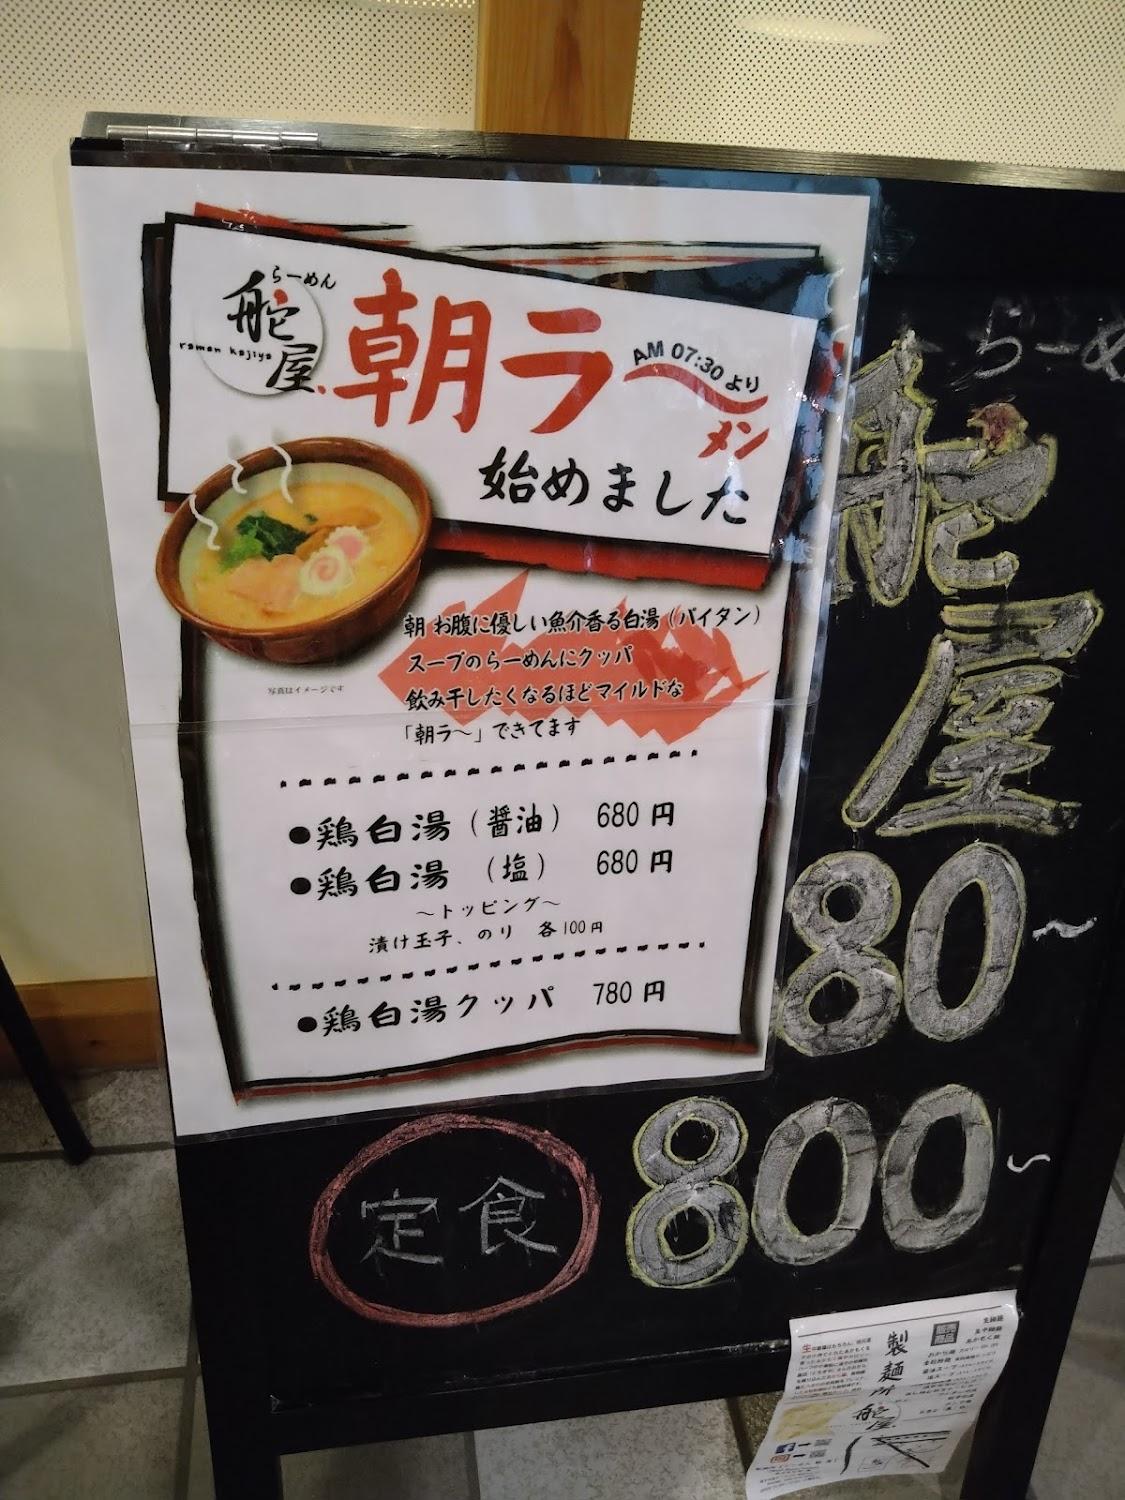 らーめん
舵屋
ramen kajiya
朝ラ〜メン
AM 07:30 より
始めました
写真はイメージです
朝 お腹に優しい魚介香る白湯(パイタン)
スープのらーめんにクッパ
飲み干したくなるほどマイルドな
「朝ラ〜」できてます
●鶏白湯(醤油) 680円
●鶏白湯 (塩) 680円
〜トッピング〜
漬け玉子、のり 各100円
●鶏白湯クッパ 780円
らーめ
舵屋
80〜
定食 800〜
製麺所
舵屋